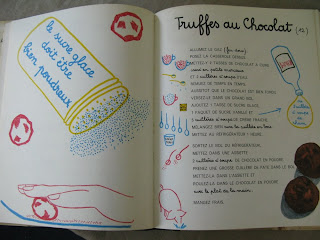 le sucre glace
doit être
bien poudreux
Truffes au Chocolat (x12)
ALLUMEZ LE GAZ (feu doux)
POSEZ LA CASSEROLE DESSUS
METTEZ-Y 4 TASSES DE CHOCOLAT À CUIRE
cassé en petits morceaux
et 3 cuillères à soupe d'eau
REMUEZ DE TEMPS EN TEMPS
AUSSITÔT QUE LE CHOCOLAT EST BIEN FONDU
VERSEZ LE DANS UN GRAND BOL
AJOUTEZ 1 TASSE DE SUCRE GLACE
1 PAQUET DE SUCRE VANILLÉ et
3 cuillères à soupe DE CRÈME FRAÎCHE
MÉLANGEZ BIEN avec la cuillère en bois
METTEZ AU RÉFRIGÉRATEUR 1 HEURE
SORTEZ LE BOL DU RÉFRIGÉRATEUR,
METTEZ DANS UNE ASSIETTE
3 cuillères à soupe DE CHOCOLAT EN POUDRE
PRENEZ UNE GROSSE CUILLÈRE DE PÂTE DANS LE BOL
METTEZ-LA DANS L'ASSIETTE ET
ROULEZ-LA DANS LE CHOCOLAT EN POUDRE
avec le plat de la main.
MANGEZ FRAIS.